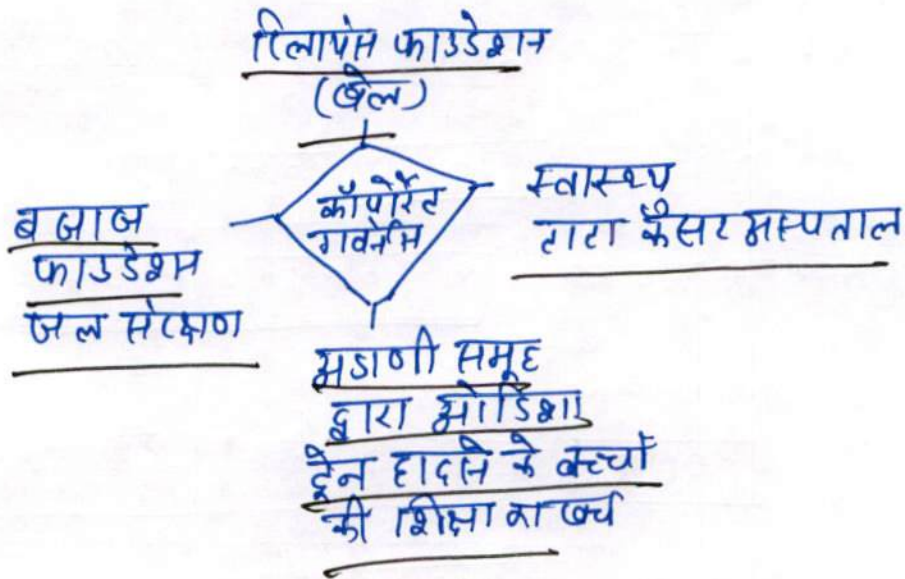 रिलायंस फाउंडेशन
(खेल)
कॉर्पोरेट
गवर्नेंस
स्वास्थ्य
टाटा कैंसर अस्पताल
बजाज
फाउंडेशन
जल संरक्षण
अडाणी समूह
द्वारा ओडिशा
ट्रेन हादसे के बच्चों
की शिक्षा का खर्च